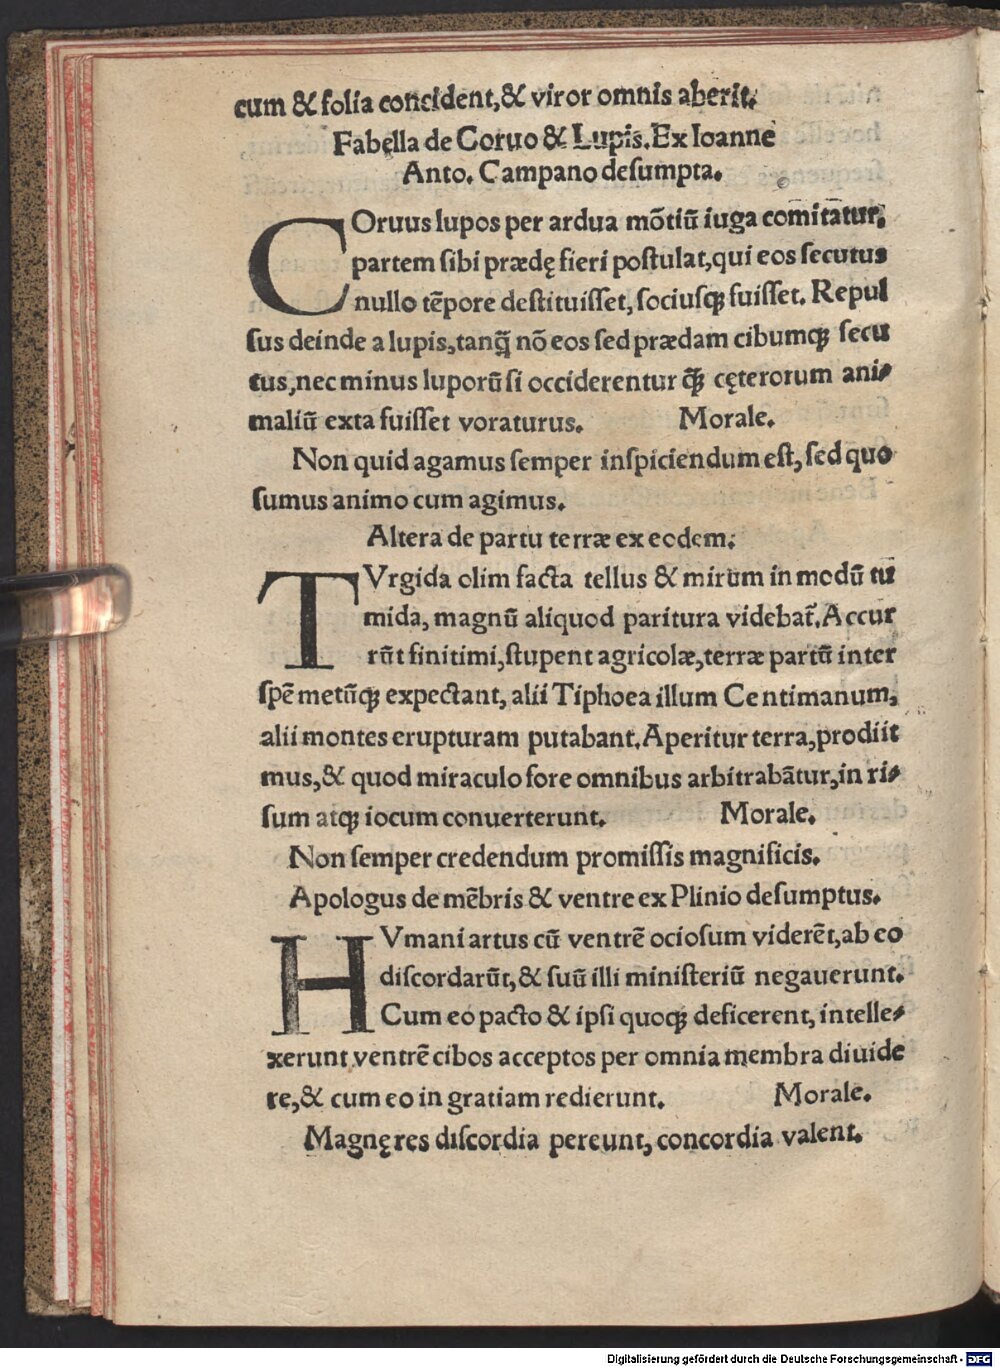 cum & folia concident,& viror omnis aberit.
Fabella de Coruo & Lupis. Ex Ioanne
Anto. Campano desumpta.
COruus lupos per ardua mõtiũ iuga comitatur,
partem sibi prædę fieri postulat, qui eos secutus
nullo tẽpore destituisset, sociusqꝫ fuisset. Repul
sus deinde a lupis, tanq̃ nõ eos sed prædam cibumqꝫ secu
tus, nec minus luporũ si occiderentur q̃ꝫ cęterorum ani-
maliũ exta fuisset voraturus. Morale.
Non quid agamus semper inspiciendum est, sed quo
sumus animo cum agimus.
Altera de partu terræ ex eodem.
TVrgida olim facta tellus & mirum in modũ tu
mida, magnũ aliquod paritura videbat̃. Accur
rũt finitimi, stupent agricolæ, terræ partũ inter
spẽ metũqꝫ expectant, alii Tiphoea illum Centimanum,
alii montes erupturam putabant. Aperitur terra, prodiit
mus, & quod miraculo fore omnibus arbitrabãtur, in ri-
sum atqꝫ iocum conuerterunt. Morale.
Non semper credendum promissis magnificis.
Apologus de mẽbris & ventre ex Plinio desumptus.
HVmani artus cũ ventrẽ ociosum viderẽt, ab eo
discordarũt, & suũ illi ministeriũ negauerunt.
Cum eo pacto & ipsi quoqꝫ deficerent, intelle-
xerunt ventrẽ cibos acceptos per omnia membra diuide
re, & cum eo in gratiam redierunt. Morale.
Magnę res discordia pereunt, concordia valent.
Digitalisierung gefördert durch die Deutsche Forschungsgemeinschaft - DFG